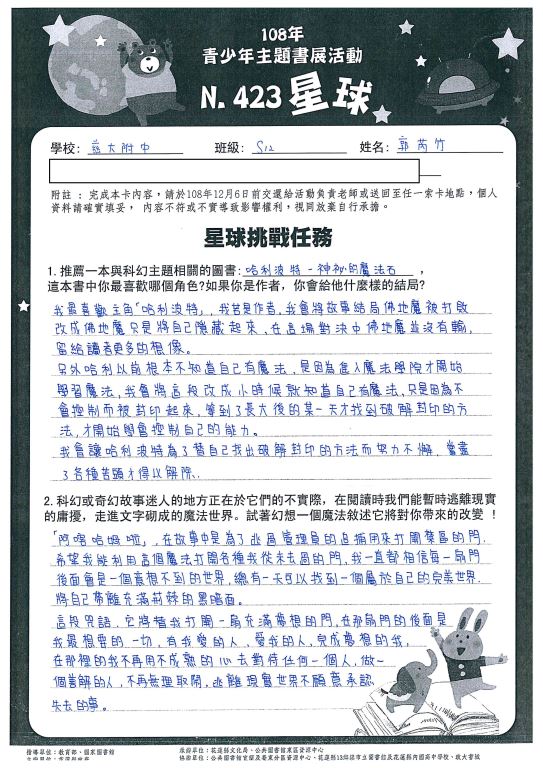 108年
青少年主題書展活動
N. 423 星球
學校: 慈大附中 班級: S12 姓名: 郭芮竹
附註：完成本卡內容，請於108年12月6日前交還給活動負責老師或送回至任一索卡地點，個人
資料請確實填妥，內容不符或不實導致影響權利，視同放棄自行承擔。
星球挑戰任務
1. 推薦一本與科幻主題相關的圖書: 哈利波特-神祕的魔法石 ，
這本書中你最喜歡哪個角色?如果你是作者，你會給他什麼樣的結局?
我最喜歡主角「哈利波特」，我若是作者，我會將故事結局佛地魔被打敗
改成佛地魔只是將自己隱藏起來，在這場對決中佛地魔並沒有輸，
留給讀者更多的想像。
另外哈利以前根本不知道自己有魔法，是因為進入魔法學院才開始
學習魔法，我會將這段改成小時候就知道自己有魔法，只是因為不
會控制而被封印起來，等到了長大後的某一天才找到破解封印的方
法，才開始學會控制自己的能力。
我會讓哈利波特為了替自己找出破解封印的方法而努力不懈，嘗盡
了各種苦頭才得以解除。
2. 科幻或奇幻故事迷人的地方正在於它們的不實際，在閱讀時我們能暫時逃離現實
的庸擾，走進文字砌成的魔法世界。試著幻想一個魔法敘述它將對你帶來的改變！
「阿咯哈姆啦」，在故事中是為了逃離管理員的追捕用來打開禁區的門.
希望我能利用這個魔法打開各種我從未去過的門，我一直都相信每一扇門
後面會是一個意想不到的世界，總有一天可以找到一個屬於自己的完美世界.
將自己帶離充滿荊棘的黑暗面。
這段咒語，它將替我打開一扇充滿夢想的門，在那扇門的後面是
我最想要的一切，有我愛的人，愛我的人，完成夢想的我，
在那裡的我不再用不成熟的心去對待任何一個人，做一
個善解的人，不再無理取鬧，逃離現實世界不願意承認
失去的事。
指導單位：教育部、國家圖書館
承辦單位：花蓮縣文化局、公共圖書館東區資源中心